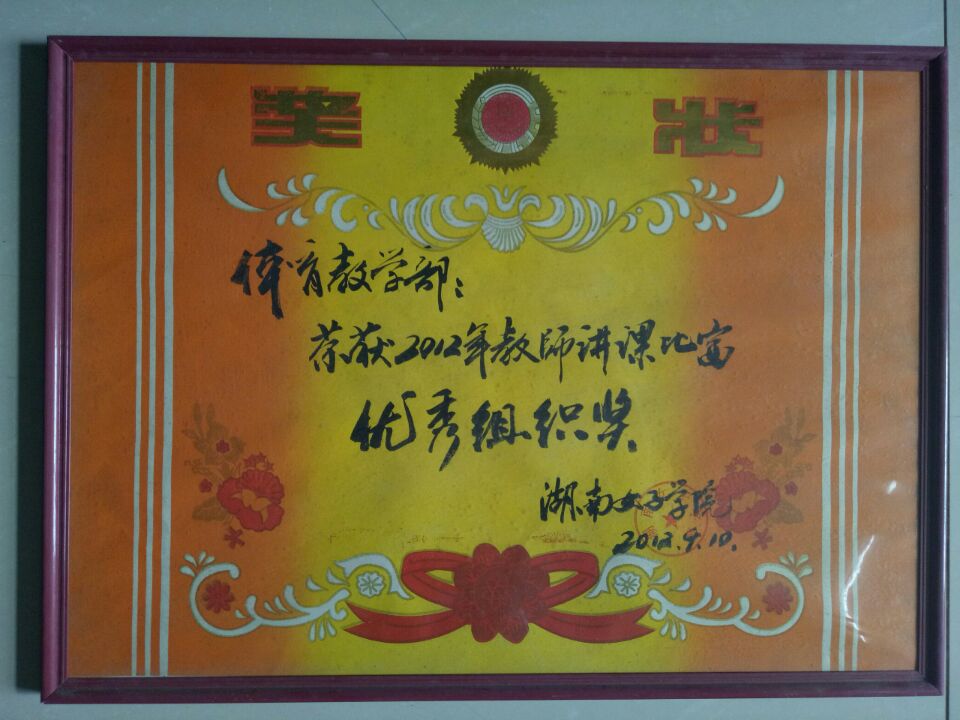 奖状
体育教学部：
荣获2012年教师讲课比赛
优秀组织奖
湖南女子学院
2012.9.10.